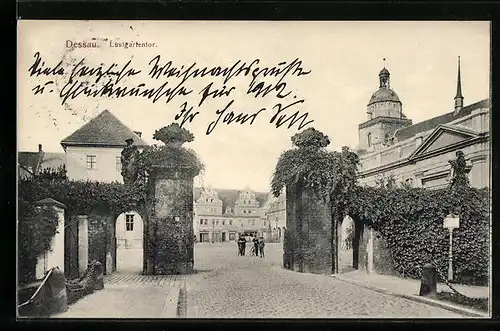 Dessau. Lustgartentor.
Viele herzliche Weihnachtsgrüße
u. Glückwünsche für 1912.
Ihr Hans